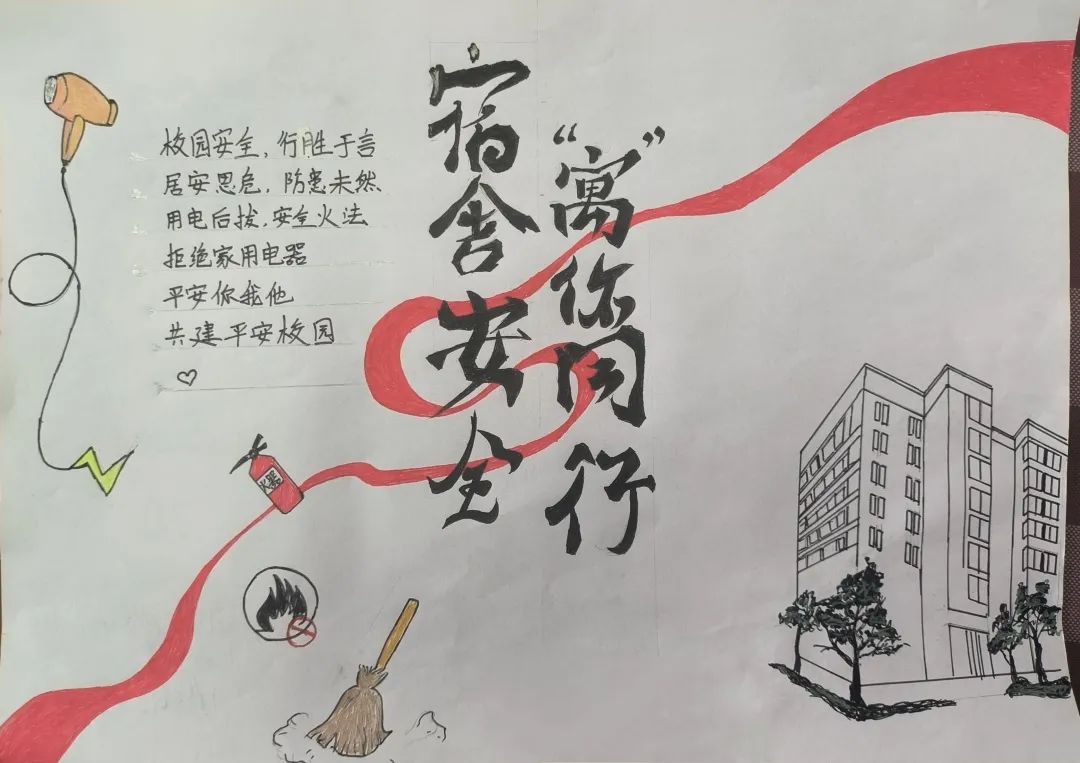 宿舍安全
“寓”你同行
校园安全，行胜于言
居安思危，防患未然
用电后拔，安全火法
拒绝家用电器
平安你我他
共建平安校园